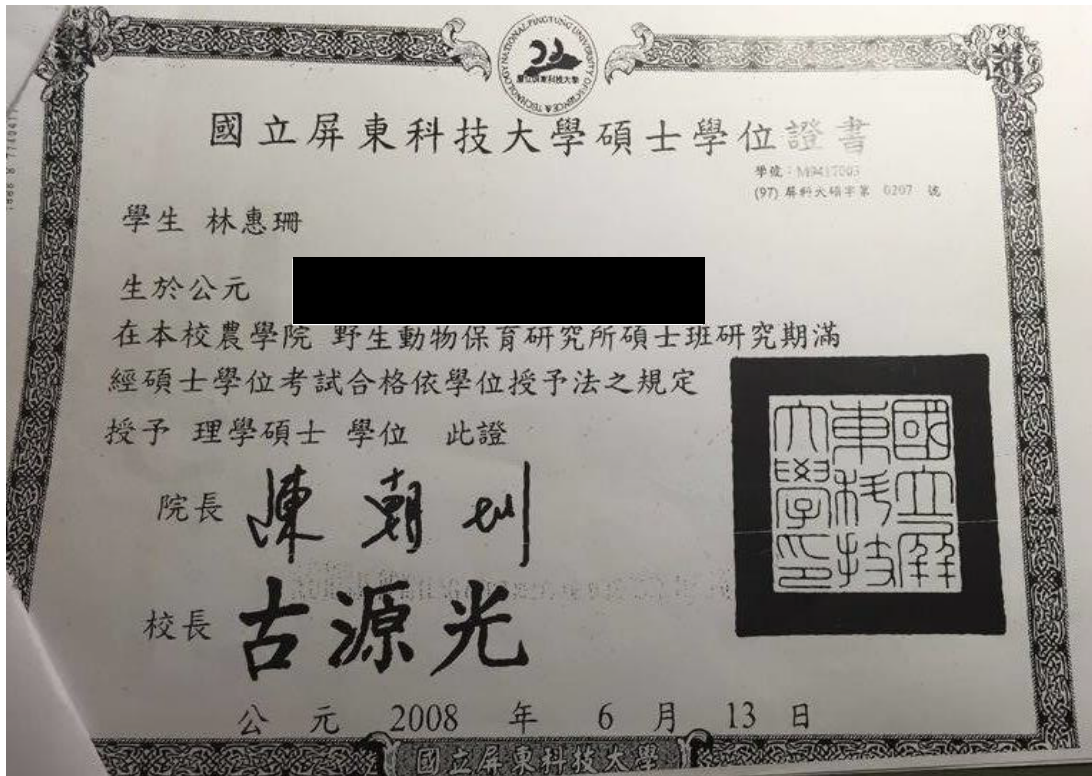 NATIONAL PINGTUNG UNIVERSITY OF SCIENCE & TECHNOLOGY
國立屏東科技大學
國立屏東科技大學碩士學位證書
學號：M9417003
(97) 屏科大碩字第 0207 號
學生 林惠珊
生於公元
在本校農學院 野生動物保育研究所碩士班研究期滿
經碩士學位考試合格依學位授予法之規定
授予 理學碩士 學位 此證
國立屏東科技大學印
院長 陳朝圳
校長 古源光
公元 2008 年 6 月 13 日
國立屏東科技大學